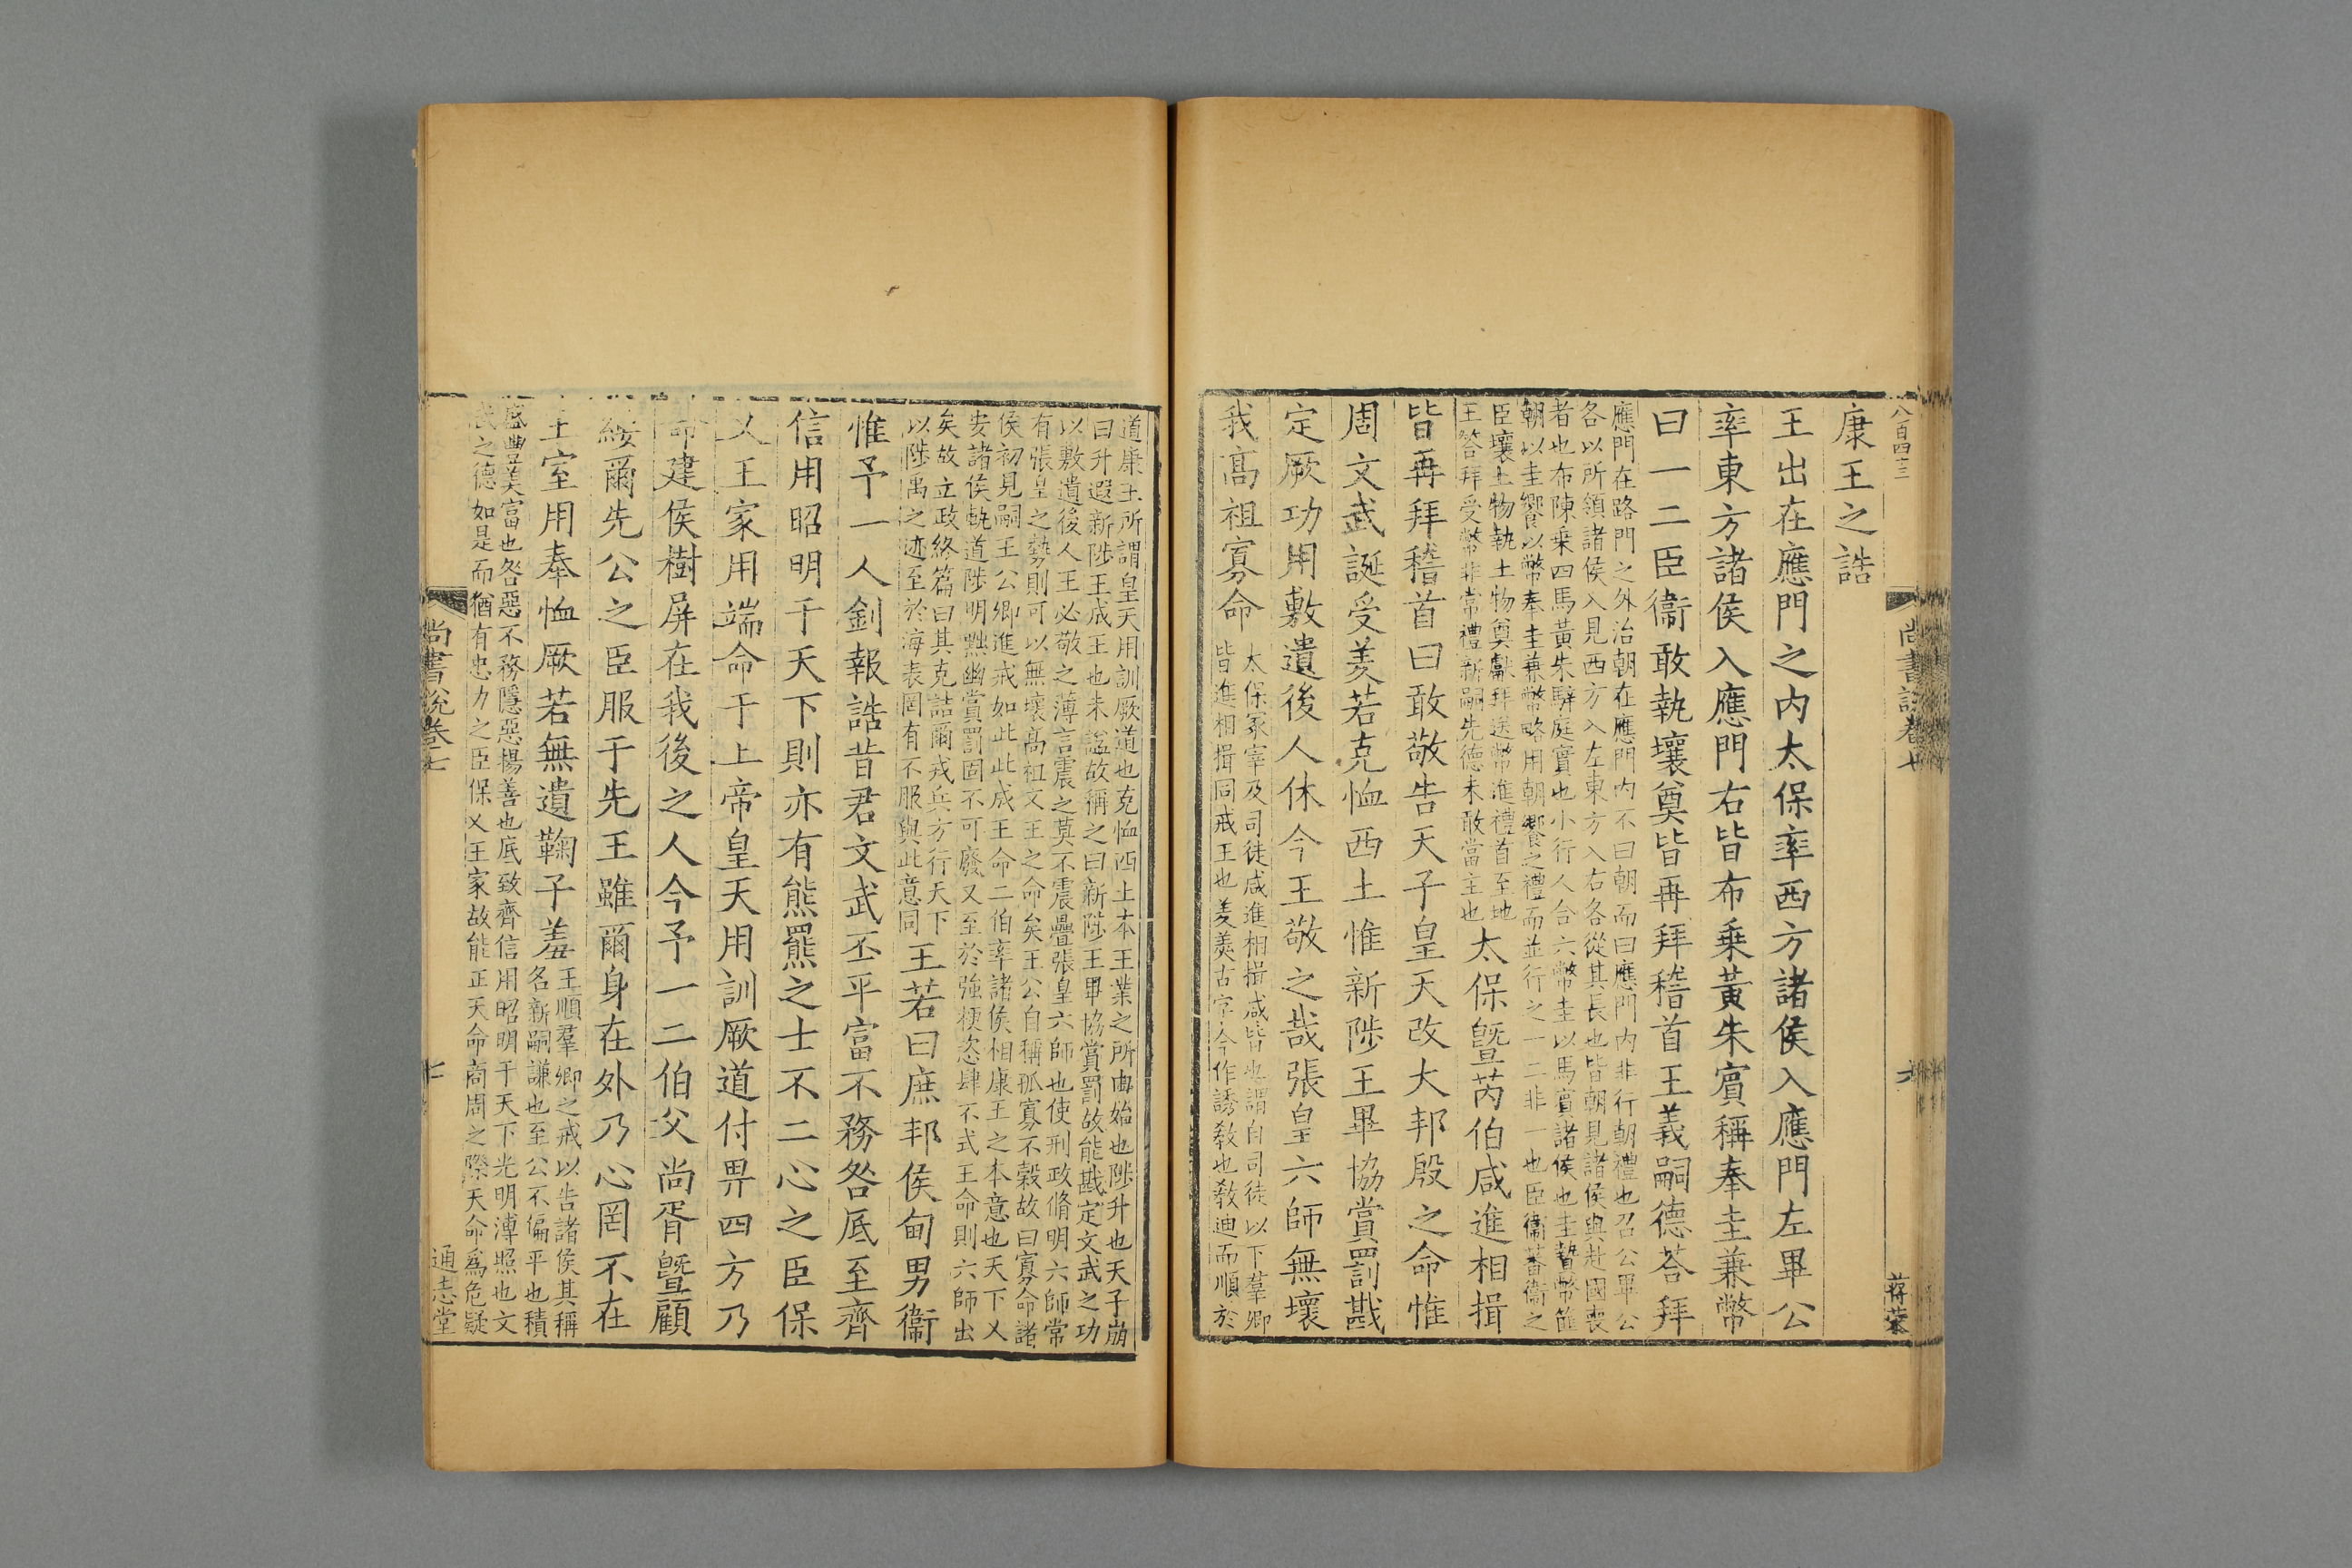 八百四三
尚書說卷七
六
蒋榮
康王之誥
王出在應門之內太保率西方諸侯入應門左畢公
率東方諸侯入應門右皆布乗黃朱賔稱奉圭兼幣
曰一二臣衞敢執壤奠皆再拜稽首王義嗣德荅拜
應門在路門之外治朝在應門內不曰朝而曰應門內非行朝禮也召公畢公
各以所領諸侯入見西方入左東方入右各從其長也皆朝見諸侯與赴國喪
者也布陳乗四馬黃朱騂庭實也小行人合六幣圭以馬賔諸侯也圭贄幣篚
朝以圭饗以幣奉圭兼幣略用朝饗之禮而並行之一二非一也臣衞蕃衞之
臣壤土物執土物奠獻拜送幣進禮首至地
王答拜受幣非常禮新嗣先德未敢當主也
太保曁芮伯咸進相揖
皆再拜稽首曰敢敬告天子皇天改大邦殷之命惟
周文武誕受羑若克恤西土惟新陟王畢協賞罰戡
定厥功用敷遺後人休今王敬之哉張皇六師無壞
我髙祖寡命
太保冢宰及司徒咸進相揖咸皆也謂自司徒以下羣卿
皆進相揖同戒王也羑羕古字今作誘敎也敎迪而順於
道康王所謂皇天用訓厥道也克恤西土本王業之所由始也陟升也天子崩
曰升遐新陟王成王也未諡故稱之曰新陟王畢協賞罰故能戡定文武之功
以敷遺後人王必敬之薄言震之莫不震疊張皇六師也使刑政脩明六師常
有張皇之勢則可以無壞髙祖文王之命矣王公自稱孤寡不榖故曰寡命諸
侯初見嗣王公卿進戒如此此成王命二伯率諸侯相康王之本意也天下乂
安諸侯軌道陟明黜幽賞罰固不可廢又至於強梗恣肆不式王命則六師出
矣故立政終篇曰其克詰爾戎兵方行天下
以陟禹之迹至於海表罔有不服與此意同
王若曰庶邦侯甸男衞
惟予一人釗報誥昔君文武丕平富不務咎厎至齊
信用昭明于天下則亦有熊羆之士不二心之臣保
乂王家用端命于上帝皇天用訓厥道付畀四方乃
命建侯樹屏在我後之人今予一二伯父尚胥曁顧
綏爾先公之臣服于先王雖爾身在外乃心罔不在
王室用奉恤厥若無遺鞠子羞
王順羣卿之戒以告諸侯其稱
名新嗣謙也至公不偏平也積
盛豐美富也咎惡不務隱惡揚善也厎致齊信用昭明于天下光明溥照也文
武之德如是而猶有忠力之臣保乂王家故能正天命商周之際天命爲危疑
尚書說卷七
七
通志堂